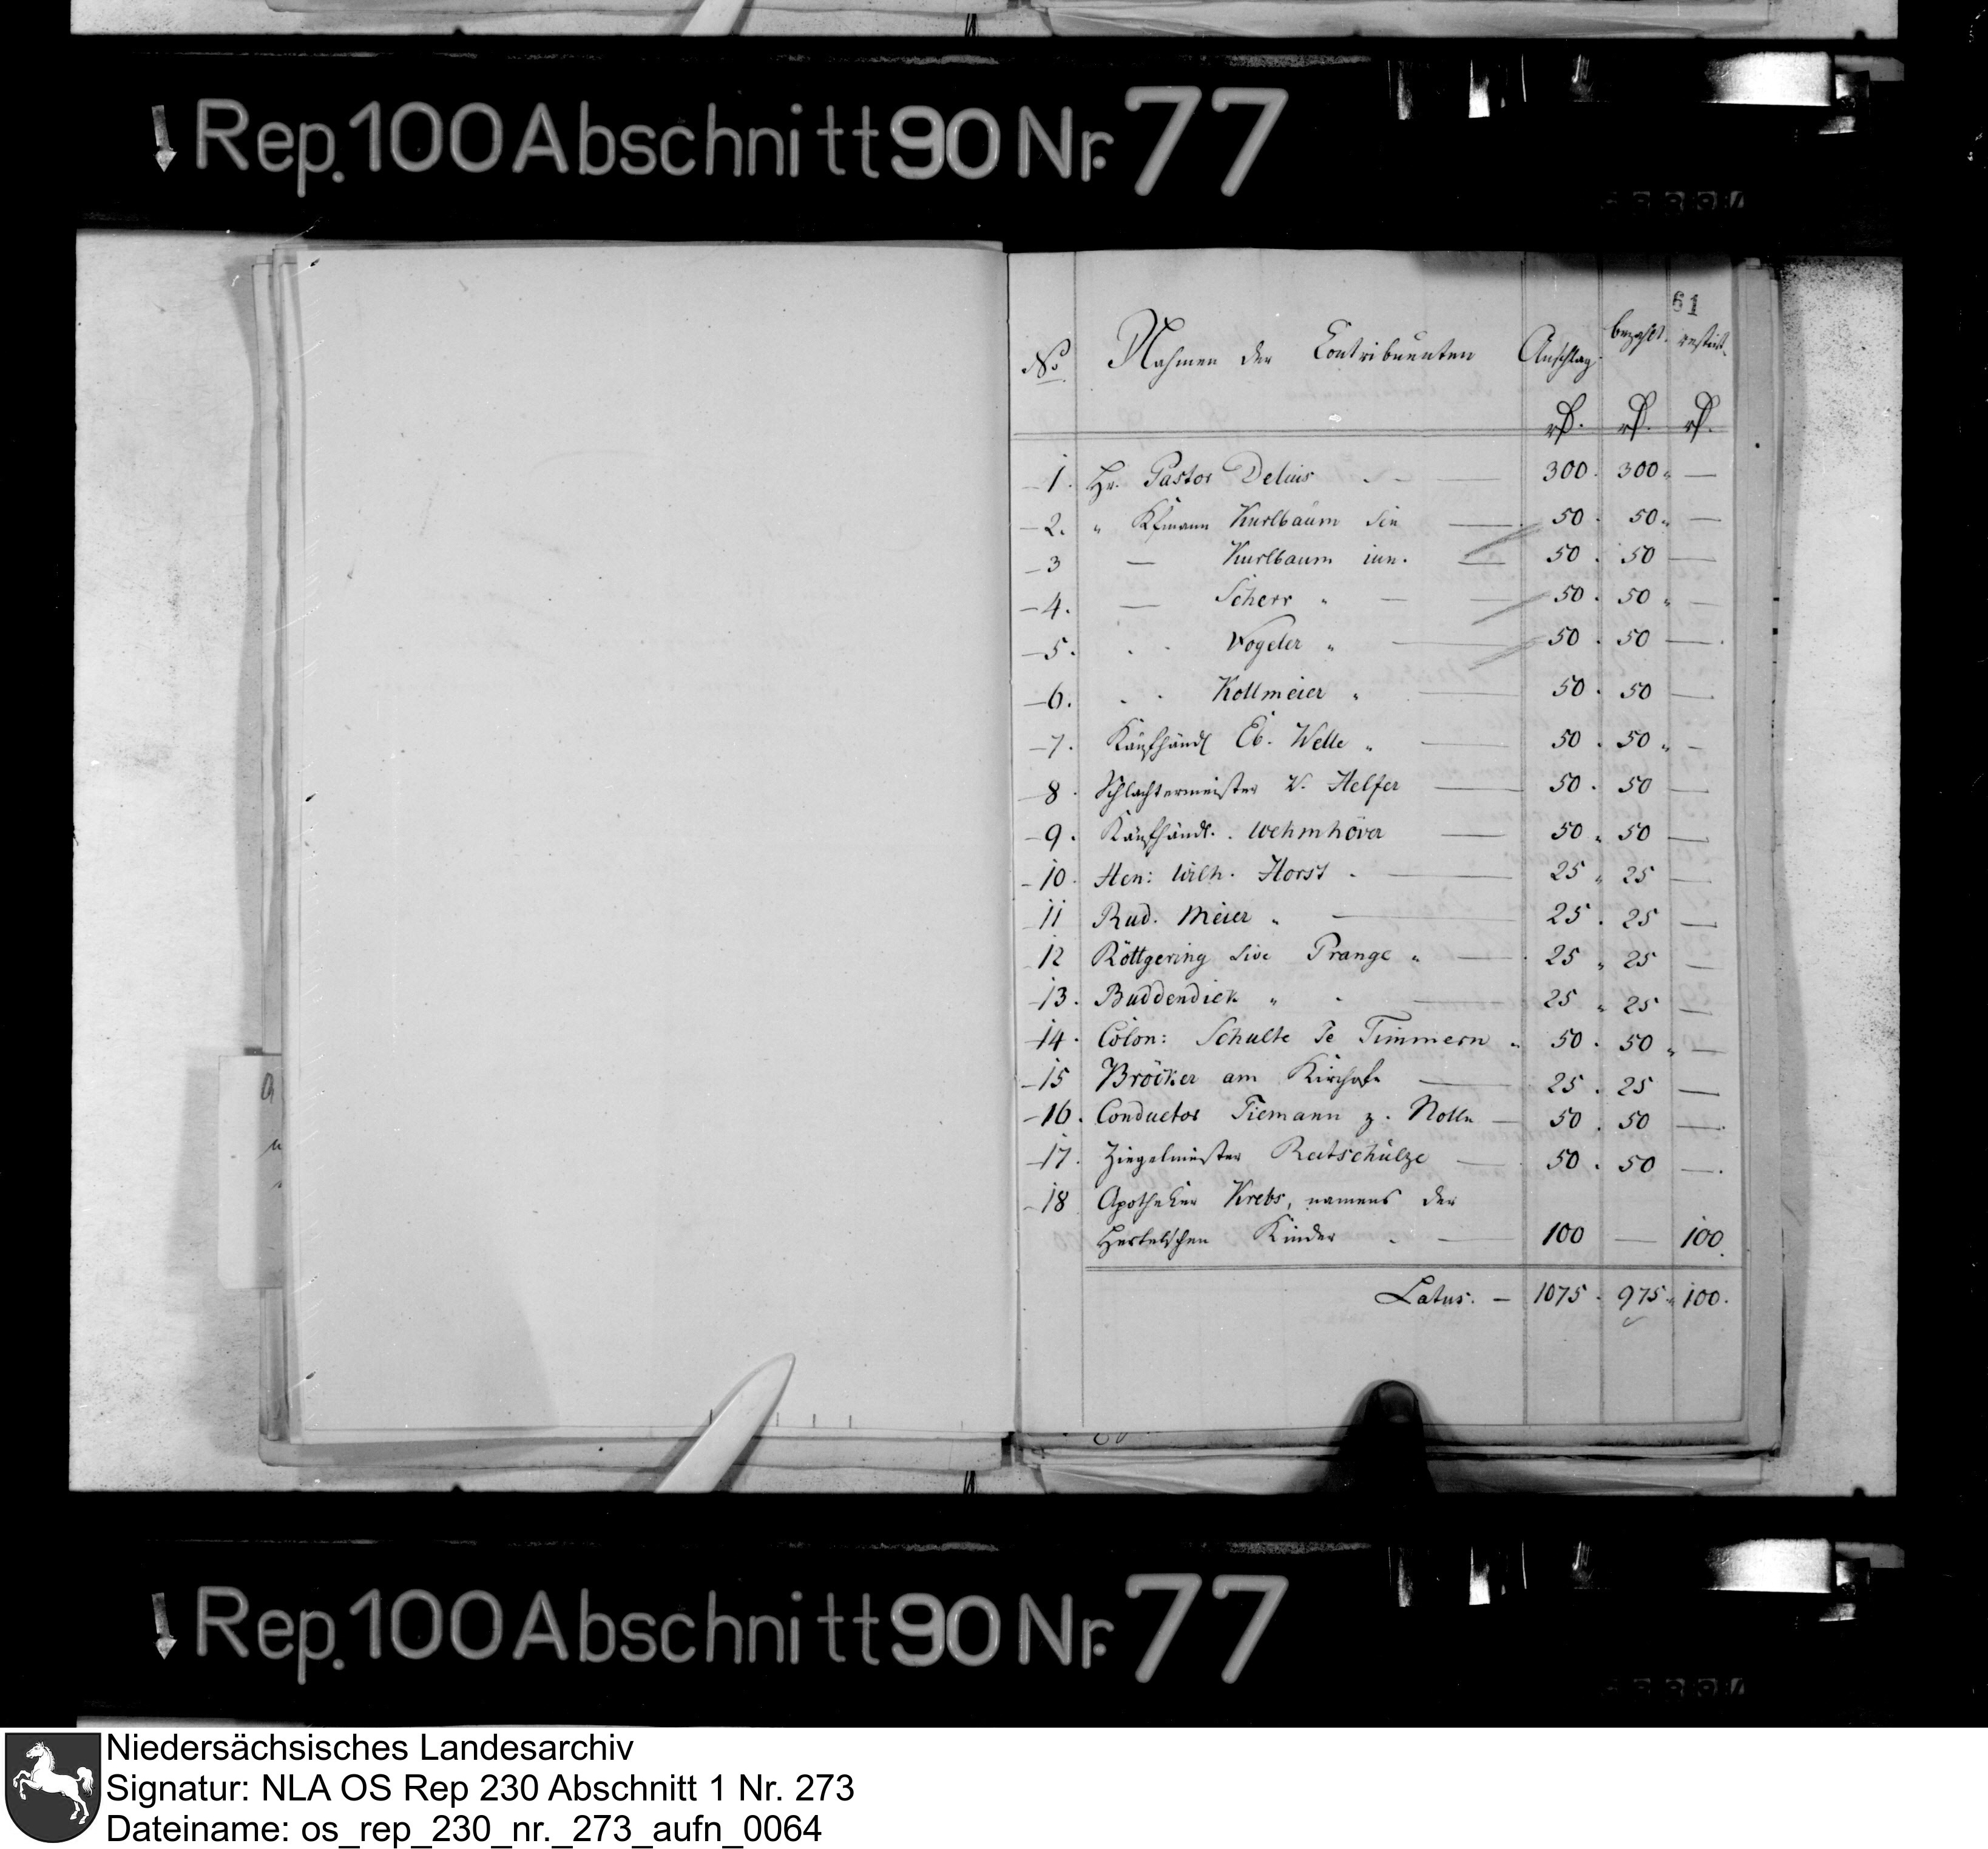 Rep. 100 Abschnitt 90 Nr. 77
61
No. Nahmen der Contribuenten Anschlag. bezahlt. restirt.
rt. rt. rt.
1. Hr. Pastor Delius - - — 300. 300 " —
2. " Kfmann Kurlbaum Sen — 50. 50 " —
3 — Kurlbaum iun. — 50. 50 —
4. — Scherr " — — 50. 50 " —
5. . . Vogeler " — 50. 50 —.
6. . . Kollmeier " — 50. 50 —
7. Kaufhändl Eb. Welle " — 50. 50 " —
8. Schlachtermeister W. Helfer — 50. 50 —
9. Kaufhändl. . Wehmhöver — 50 " 50 —
10. Hen: Wilh. Horst . — 25 " 25 —
11 Rud. Meier " — 25. 25 —
12 Röttgering sive Prange " — 25 " 25 —
13. Buddendiek " - — 25 " 25 —
14. Colon: Schulte Te Timmern " 50. 50 " —
15 Bröcker am Kirchofe — 25. 25 —
16. Conductor Tiemann z. Nolln — 50. 50 —.
17. Ziegelmeister Reitschulze — 50. 50 —.
18 Apotheker Krebs, namens der
Hertelschen Kinder - — 100 — 100.
Latus. — 1075. 975 " 100.
Rep. 100 Abschnitt 90 Nr. 77
Niedersächsisches Landesarchiv
Signatur: NLA OS Rep 230 Abschnitt 1 Nr. 273
Dateiname: os_rep_230_nr._273_aufn_0064